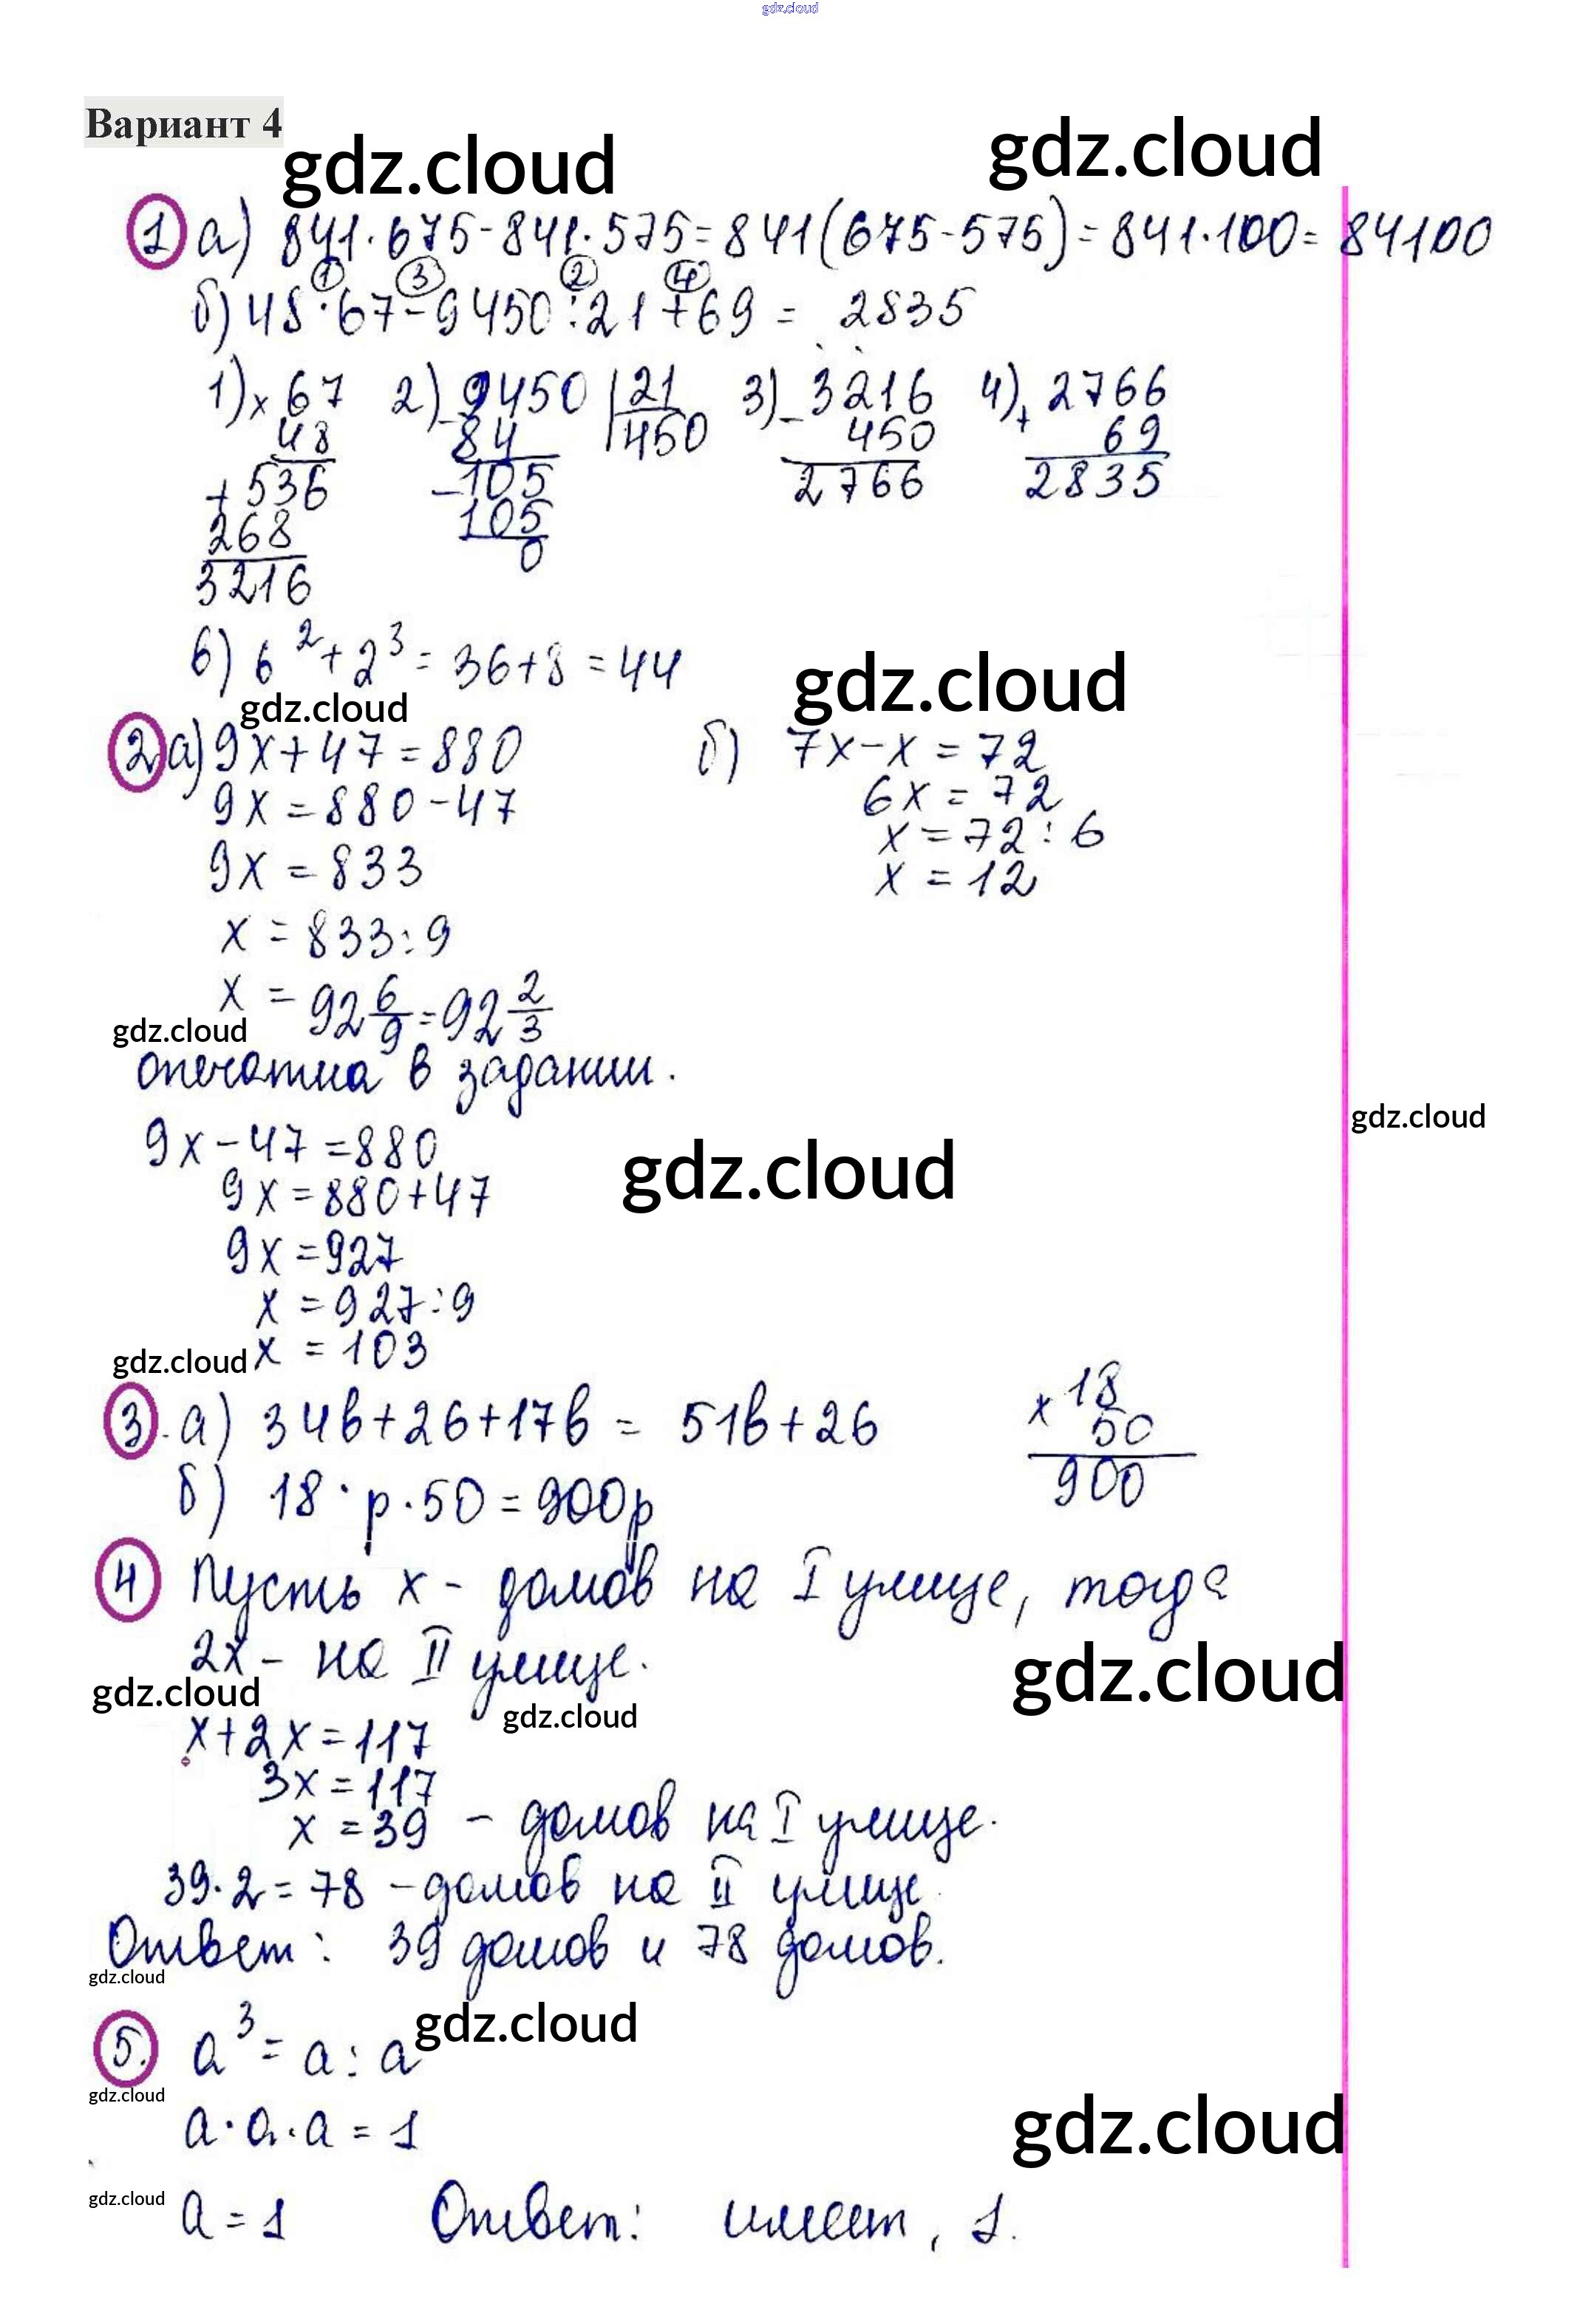 gdz.cloud
Вариант 4
gdz.cloud
gdz.cloud
1 а) 841·675-841·575=841(675-575)=841·100=84100
1 3 2 4
б) 48·67-9450:21+69 = 2835
1) × 67 2) 9450 | 21 3) - 3216 4) + 2766
48 - 84 450 450 69
+ 536 - 105 2766 2835
268 105
3216 0
в) 6² + 2³ = 36+8 = 44
gdz.cloud
gdz.cloud
2 а) 9x+47=880 б) 7x-x=72
9x=880-47 6x=72
9x=833 x=72:6
x=833:9 x=12
x=92 6/9=92 2/3
gdz.cloud
опечатка в задании.
gdz.cloud
9x-47=880
gdz.cloud
9x=880+47
9x=927
x=927:9
gdz.cloud
x=103
3. а) 34в+26+17в = 51в+26 × 18
50
900
б) 18·p·50=900p
4 Пусть x - домов на I улице, тогда
2x - на II улице.
gdz.cloud
gdz.cloud
gdz.cloud
x+2x=117
3x=117
x=39 - домов на I улице.
39·2=78 - домов на II улице
Ответ: 39 домов и 78 домов.
gdz.cloud
gdz.cloud
5. a³=a:a
gdz.cloud
a·a·a=1
gdz.cloud
gdz.cloud
a=1 Ответ: имеет, 1.